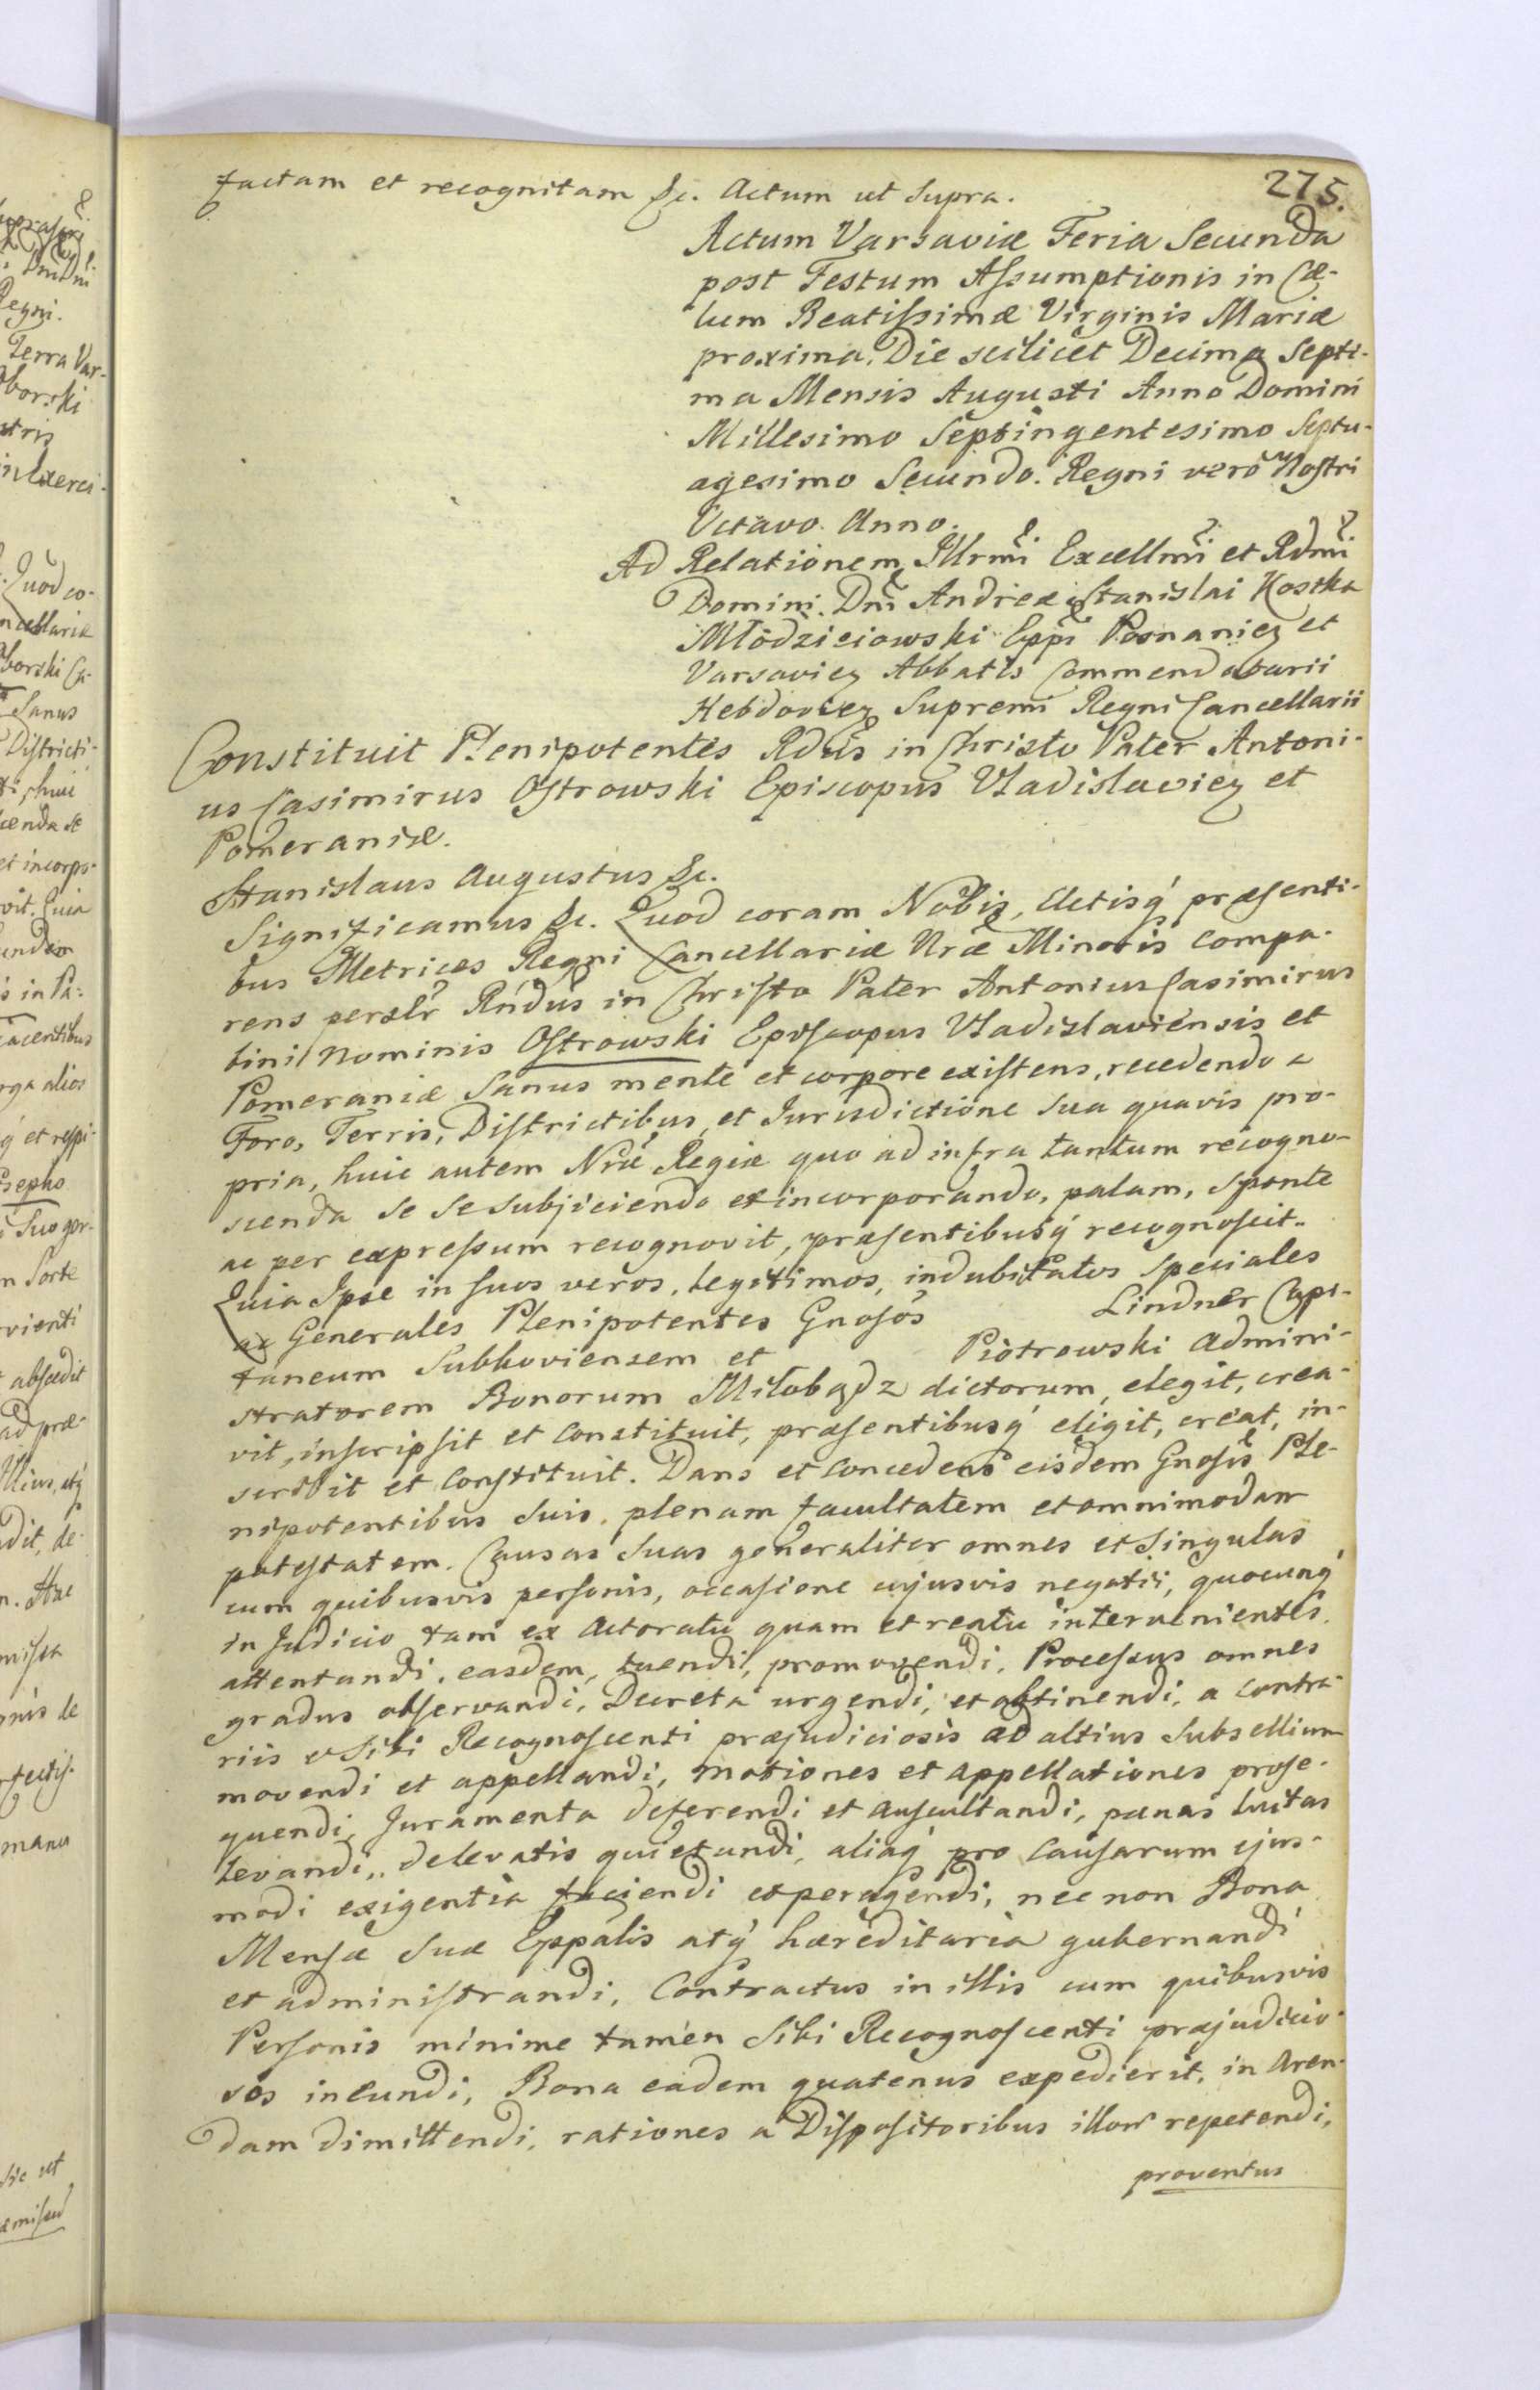 275.
factam et recognitam &c. Actum ut supra.
Actum Varsaviæ Feria Secunda
post Festum Assumptionis in Cæ-
lum Beatissimæ Virginis Mariæ
proxima, Die scilicet Decima Septi-
ma Mensis Augusti Anno Domini
Millesimo Septingentesimo Septu-
agesimo Secundo. Regni verò Nostri
Octavo Anno.
Ad Relationem Illrmi Excellmi et Rdmi
Domini Dni Andreæ Stanislai Kostka
Młodzieiowski Eppi Posnanien et
Varsavien Abbatis Commendatarii
Hebdovien Supremi Regni Cancellarii
Constituit Plenipotentes Rdus in Christo Pater Antoni-
us Casimirus Ostrowski Episcopus Vladislavien et
Pomeraniæ.
Stanislaus Augustus &c.
Significamus &c. Quod coram Nobis, Actisq́ præsenti-
bus Metrices Regni Cancellariæ Nræ Minoris compa-
rens perslr Rndus in Christo Pater Antonius Casimirus
bini Nominis Ostrowski Episcopus Vladislaviensis et
Pomeraniæ Sanus mente et corpore existens, recedendo a
Foro, Terris, Districtibus, et Jurisdictione sua quavis pro-
pria, huic autem Nræ Regiæ quo ad infra tantum recogno-
scenda se se subjiciendo et incorporando, palam, sponte
ac per expressum recognovit, præsentibusq́ recognoscit..
Quia Ipse in suos veros, legitimos, indubitatos Speciales
ac Generales Plenipotentes Gnosos Lindner Capi-
taneum Subkoviensem et Piotrowski Admini-
stratorem Bonorum Miłobądz dictorum, elegit, crea-
vit, inscripsit et constituit, præsentibusq́ eligit, creat, in-
scribit et constituit. Dans et concedens eisdem Gnosis Ple-
nipotentibus suis, plenam facultatem et omnimodam
potestatem. Causas suas generaliter omnes et singulas
cum quibusvis personis, occasione cujusvis negotii, quocunq́
in Judicio tam ex Actoratu quam et reatu intervenientes.
attentandi, easdem, tuendi, promovendi, Processus omnes
gradus observandi, Decreta urgendi, et obtinendi, a contra-
riis v sibi Recognoscenti præjudiciosis ad altius Subsellium
movendi et appellandi, motiones et appellationes prose-
quendi, Juramenta deferendi et auscultandi, pænas luitas
levandi,, de levatis quietandi, aliaq́ pro causarum ejus-
modi exigentia faciendi et peragendi, nec non Bona
Mensæ suæ Eppalis atq́ hæreditaria gubernandi
et administrandi, Contractus in illis cum quibusvis
Personis minime tamen Sibi Recognoscenti præjudicio-
sos ineundi, Bona eadem quatenus expedierit, in Aren-
dam dimittendi, rationes a Dispositoribus illorr repetendi,
proventus